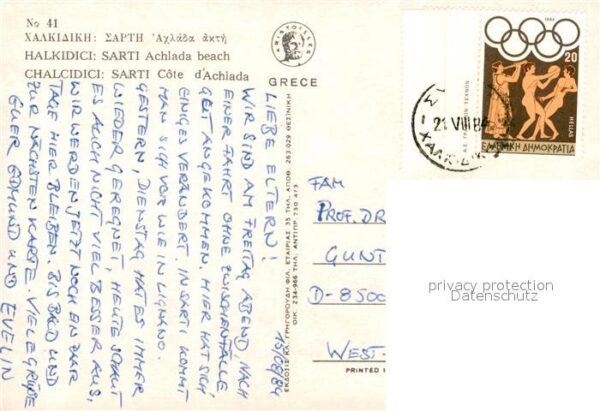 No 41
ΧΑΛΚΙΔΙΚΗ: ΣΑΡΤΗ Ἀχλάδα ἀκτή
HALKIDICI: SARTI Achlada beach
CHALCIDICI: SARTI Côte d'Achlada
ARISTOTELES
GRECE
1984
20
HELLAS
ΕΛΛΗΝΙΚΗ ΔΗΜΟΚΡΑΤΙΑ
21 VIII 84
15/8/84
LIEBE ELTERN!
WIR SIND AM FREITAG ABEND, NACH
EINER FAHRT OHNE ZWISCHENFÄLLE
GUT ANGEKOMMEN. HIER HAT SICH
EINIGES VERÄNDERT. IN SARTI KOMMT
MAN SICH VOR WIE IN LIGNANO.
GESTERN, DIENSTAG HAT ES IMMER
WIEDER GEREGNET, HEUTE SCHAUT
ES AUCH NICHT VIEL BESSER AUS.
WIR WERDEN JETZT NOCH EIN PAAR
TAGE HIER BLEIBEN. BIS BALD UND
ZUR NÄCHSTEN KARTE. VIELE GRÜSSE
EUER EDMUND UND EVELIN
ΕΚΔΟΣΙΣ ΚΛ. ΓΡΗΓΟΡΟΥΔΗ ΦΙΛ. ΕΤΑΙΡΙΑΣ 35 ΤΗΛ. ΑΠΟΘ. 263.029 ΘΕΣ/ΝΙΚΗ
ΟΙΚ. 234-966 ΤΗΛ. ΑΝΤΙΠΡ. 730 473
FAM
PROF. DR
GUNT
D-8500
WEST-
PRINTED I
privacy protection
Datenschutz